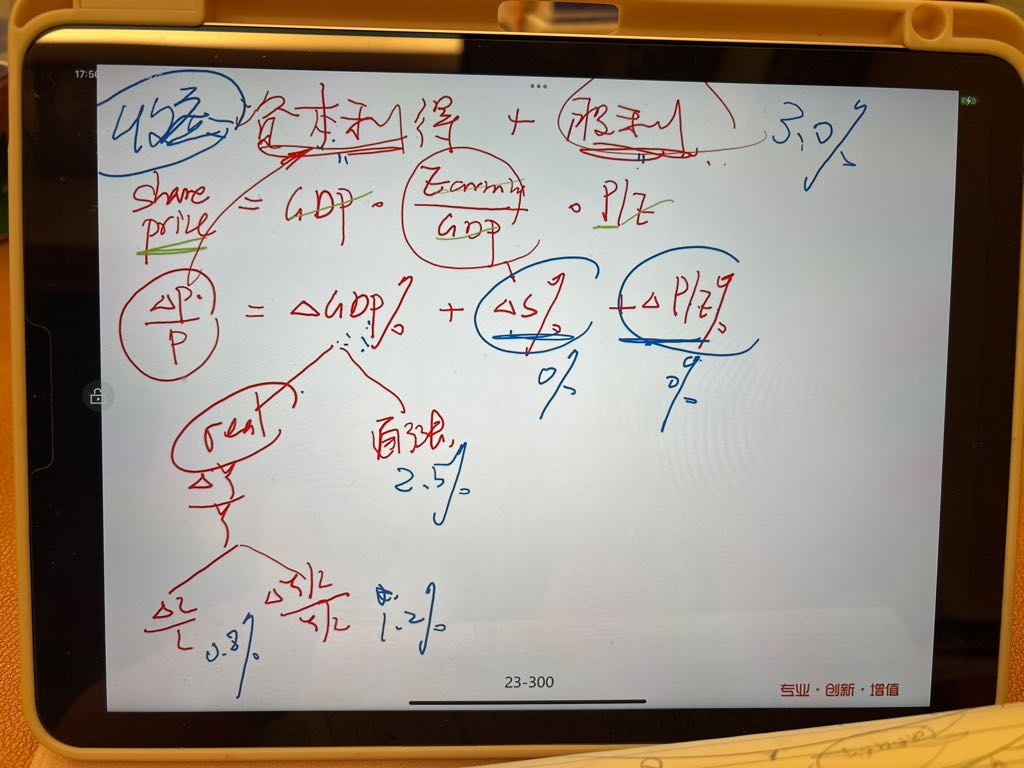 17:56
收益 资本利得 + 股利 3.0%
share prize = GDP · Earning/GDP · P/E
ΔP/P = ΔGDP% + ΔS% + ΔP/E%
0% 0%
real 通胀
2.5%
ΔY/Y
ΔL/L 0.8% ΔY/L / Y/L 1.2%
23-300
专业·创新·增值